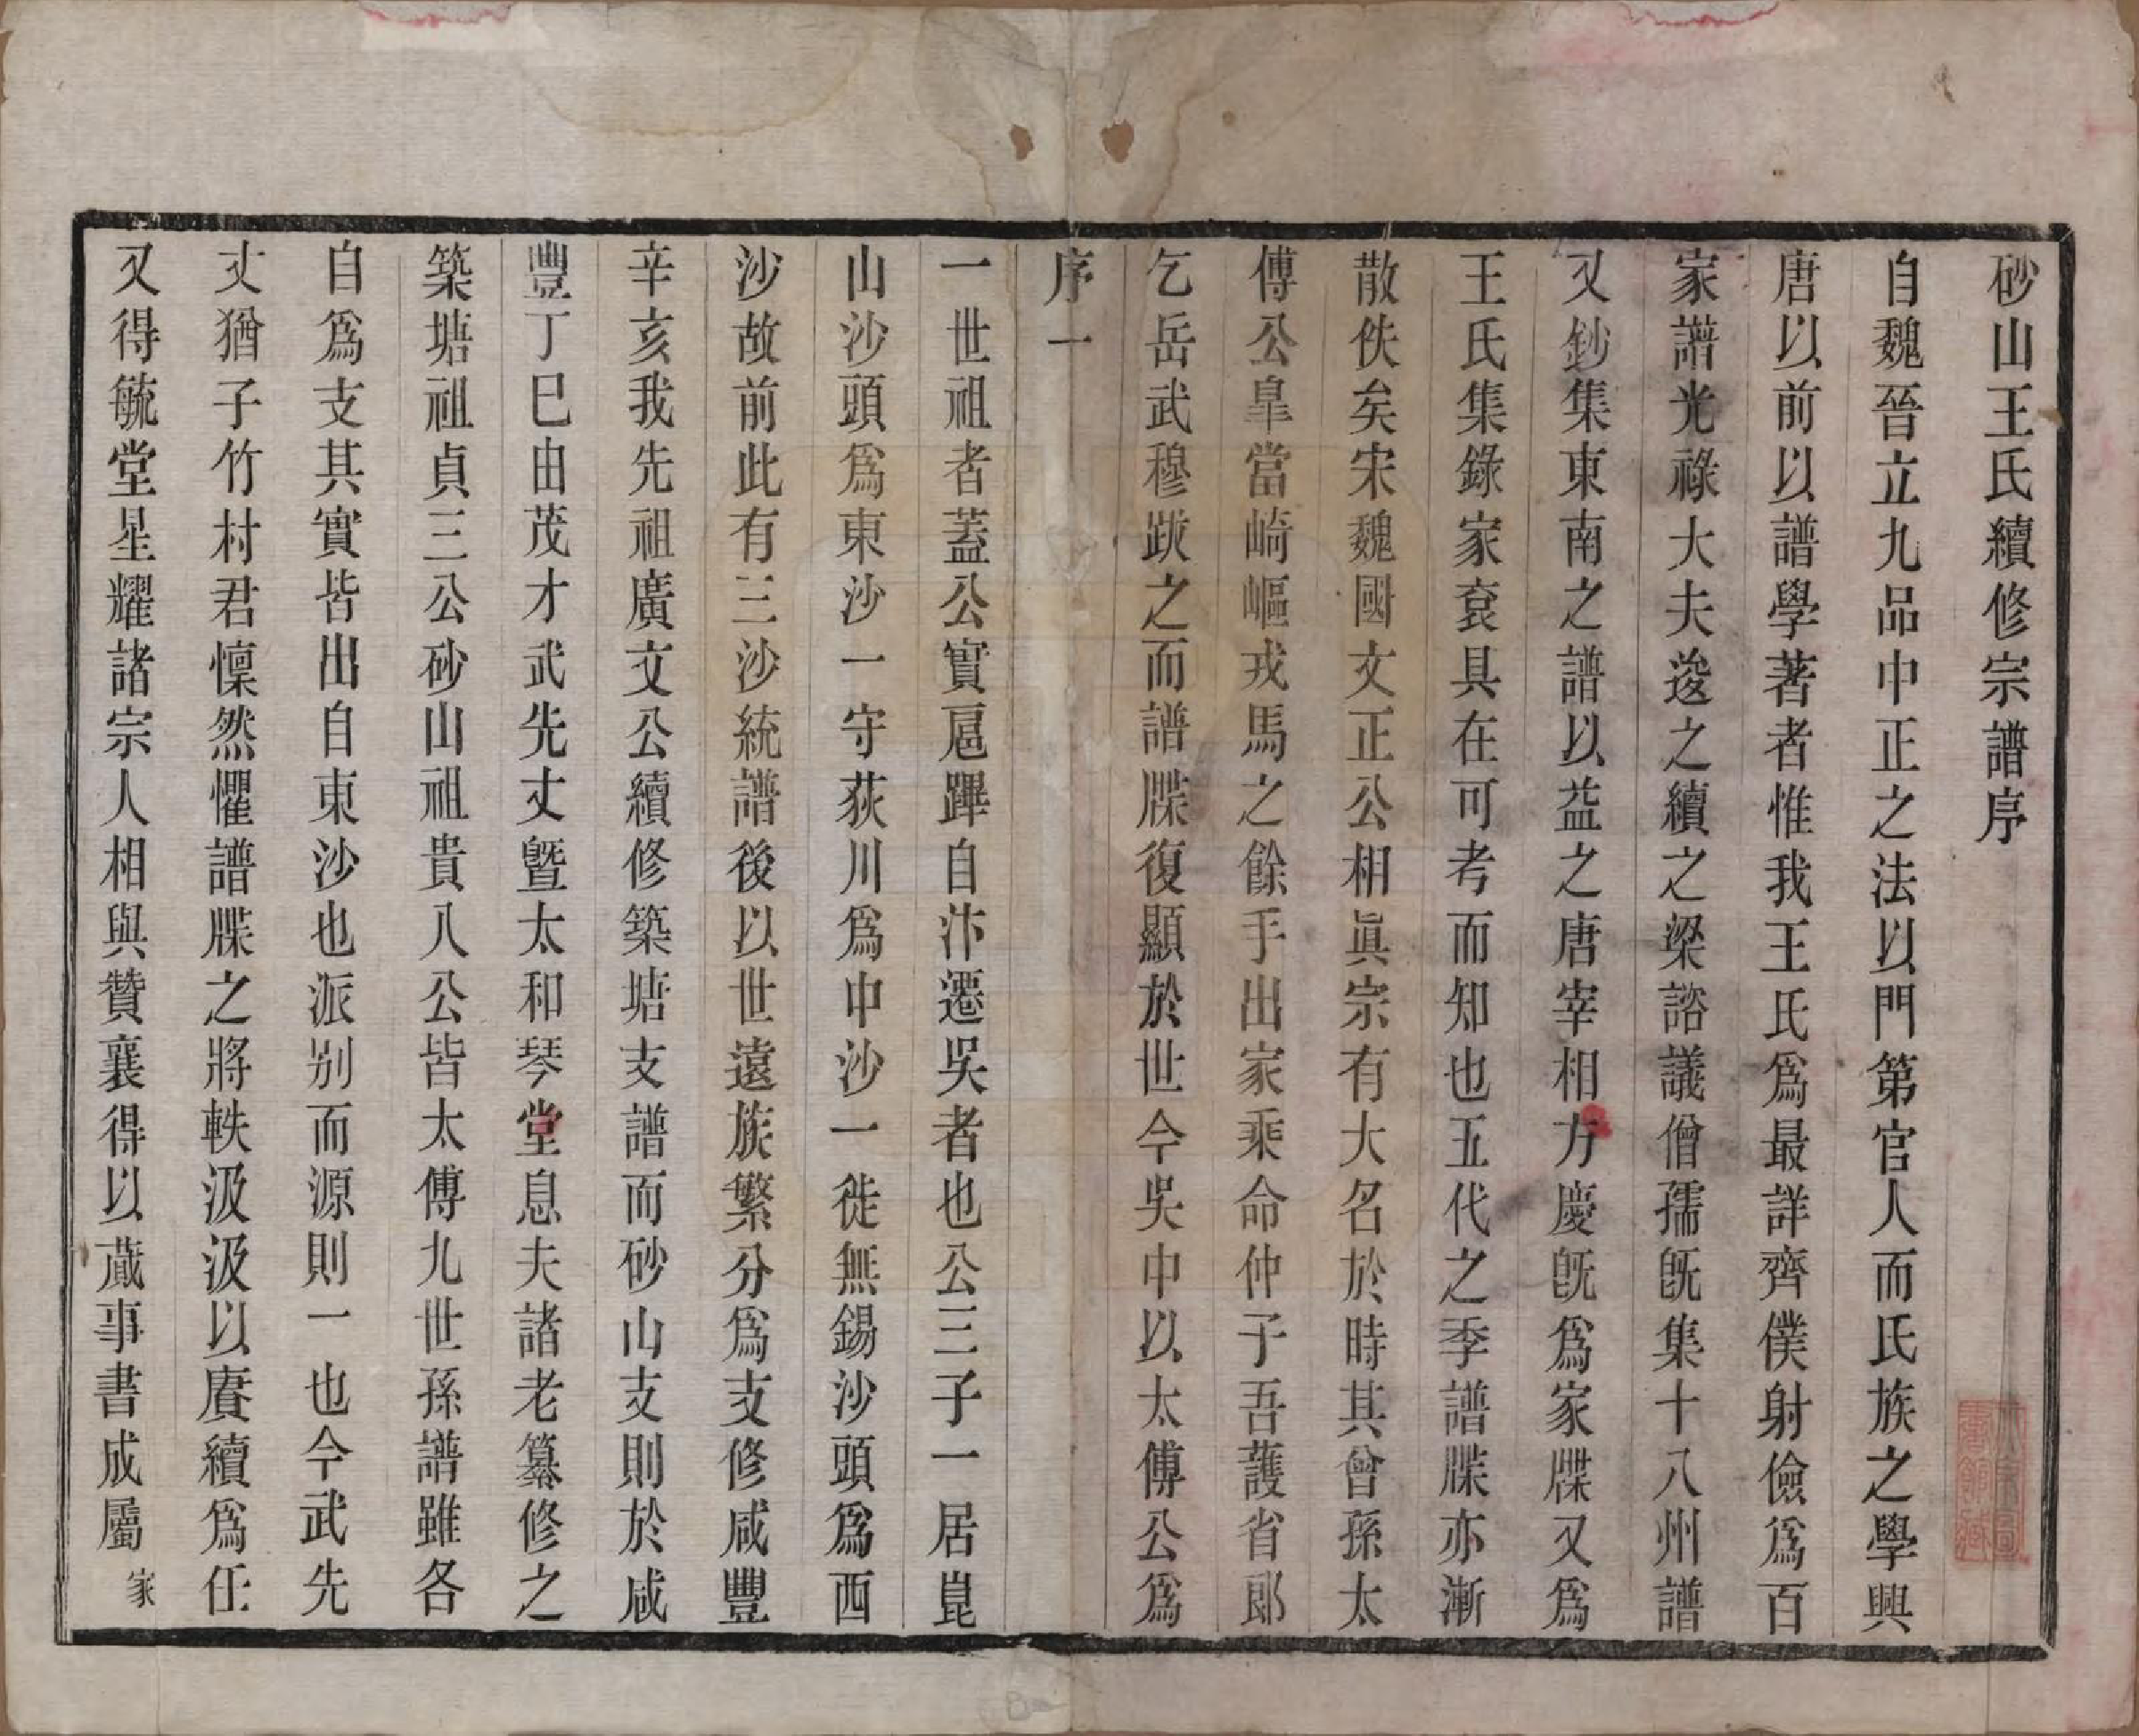 砂山王氏續修宗譜序
自魏晉立九品中正之法以門第官人而氏族之學興
唐以前以譜學著者惟我王氏爲最詳齊僕射儉爲百
家譜光祿大夫逡之續之梁諮議僧孺旣集十八州譜
又鈔集東南之譜以益之唐宰相方慶旣爲家牒又爲
王氏集錄家袞具在可考而知也五代之季譜牒亦漸
散佚矣宋魏國文正公相眞宗有大名於時其曾孫太
傅公皐當崎嶇戎馬之餘手出家乘命仲子吾䕶省郞
乞岳武穆跋之而譜牒復顯於世今吳中以太傅公爲
序一
一世祖者蓋公實扈蹕自汴遷吳者也公三子一居崑
山沙頭爲東沙一守荻川爲中沙一徙無錫沙頭爲西
沙故前此有三沙統譜後以世遠族繁分爲支修咸豐
辛亥我先祖廣文公續修築塘支譜而砂山支則於咸
豐丁巳由茂才武先丈曁太和琴堂息夫諸老纂修之
築塘祖貞三公砂山祖貴八公皆太傅九世孫譜雖各
自爲支其實皆出自東沙也派别而源則一也今武先
丈猶子竹村君懍然懼譜牒之將軼汲汲以賡續爲任
又得毓堂星耀諸宗人相與贊襄得以蕆事書成屬家